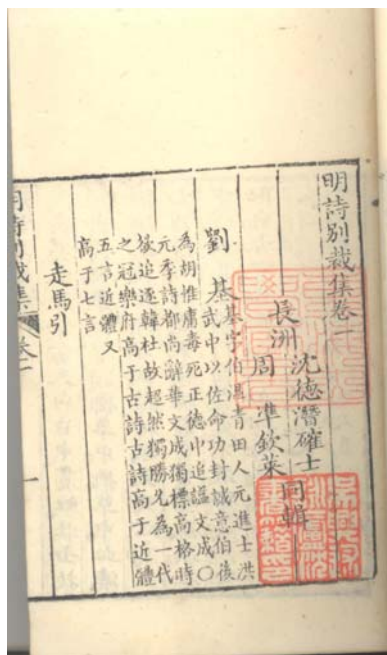 明詩別裁集卷一
長洲
沈德潛確士
周準欽萊
同輯
劉基
基字伯溫青田人元進士洪
武中以佐命功封誠意伯後
為胡惟庸毒死正德中追謚文成〇
元季詩都尚辭華文成獨標高格時
欲追逐韓杜故超然獨勝允為一代
之冠樂府高于古詩古詩高于近體
五言近體又
高于七言
走馬引